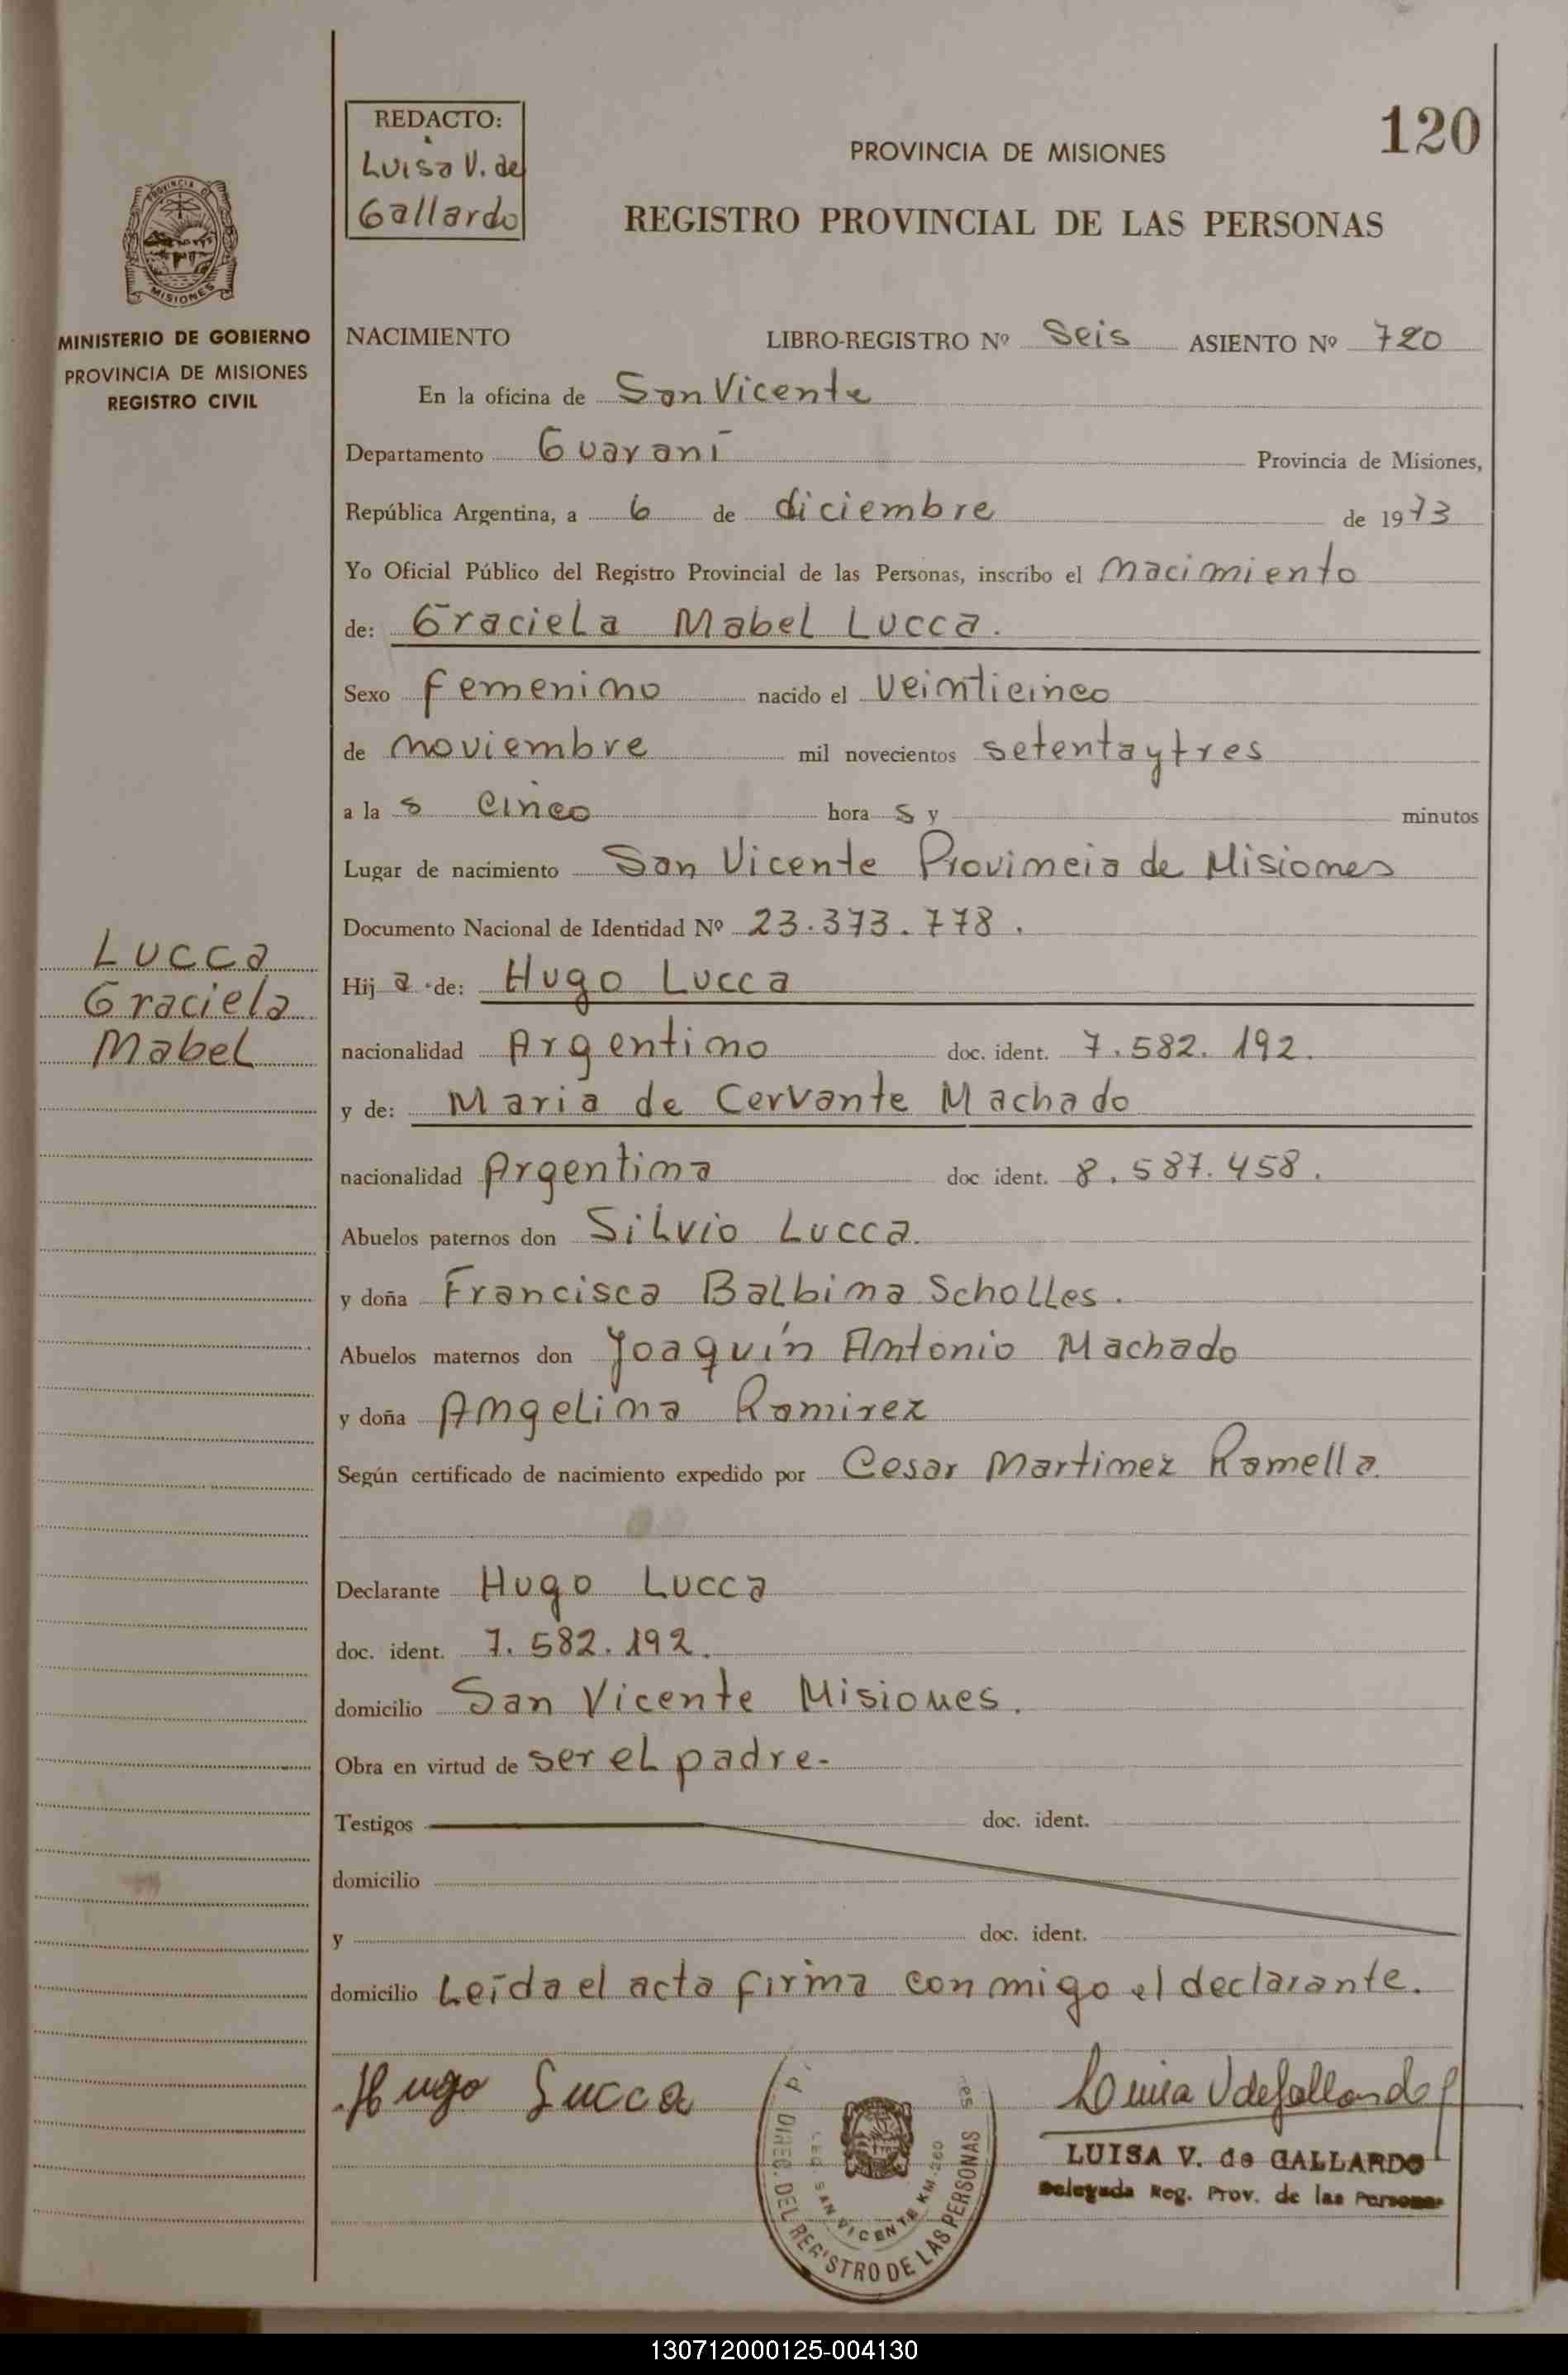 REDACTO:
Luisa V. de
Gallardo
120
PROVINCIA DE MISIONES
REGISTRO PROVINCIAL DE LAS PERSONAS
PROVINCIA DE
MISIONES
MINISTERIO DE GOBIERNO
PROVINCIA DE MISIONES
REGISTRO CIVIL
NACIMIENTO LIBRO-REGISTRO Nº Seis ASIENTO Nº 720
En la oficina de San Vicente
Departamento Guaraní Provincia de Misiones,
República Argentina, a 6 de diciembre de 1973
Yo Oficial Público del Registro Provincial de las Personas, inscribo el nacimiento
de: Graciela Mabel Lucca.
Sexo femenino nacido el veinticinco
de noviembre mil novecientos setentaytres
a la s cinco hora s y minutos
Lugar de nacimiento San Vicente Provincia de Misiones
Documento Nacional de Identidad Nº 23.373.778.
Lucca
Graciela
Mabel
Hij a de: Hugo Lucca
nacionalidad Argentino doc. ident. 7.582.192.
y de: Maria de Cervante Machado
nacionalidad Argentina doc ident. 8.587.458.
Abuelos paternos don Silvio Lucca.
y doña Francisca Balbina Scholles.
Abuelos maternos don Joaquín Antonio Machado
y doña Angelina Ramirez
Según certificado de nacimiento expedido por Cesar Martinez Ramella.
Declarante Hugo Lucca
doc. ident. 7.582.192.
domicilio San Vicente Misiones.
Obra en virtud de ser el padre-
Testigos doc. ident.
domicilio
y doc. ident.
domicilio Leída el acta firma conmigo el declarante.
Hugo Lucca
Luisa V de Gallardo
LUISA V. de GALLARDO
Delegada Reg. Prov. de las Personas
DIREC. DEL REGISTRO DE LAS PERSONAS
SAN VICENTE KM. 260
130712000125-004130